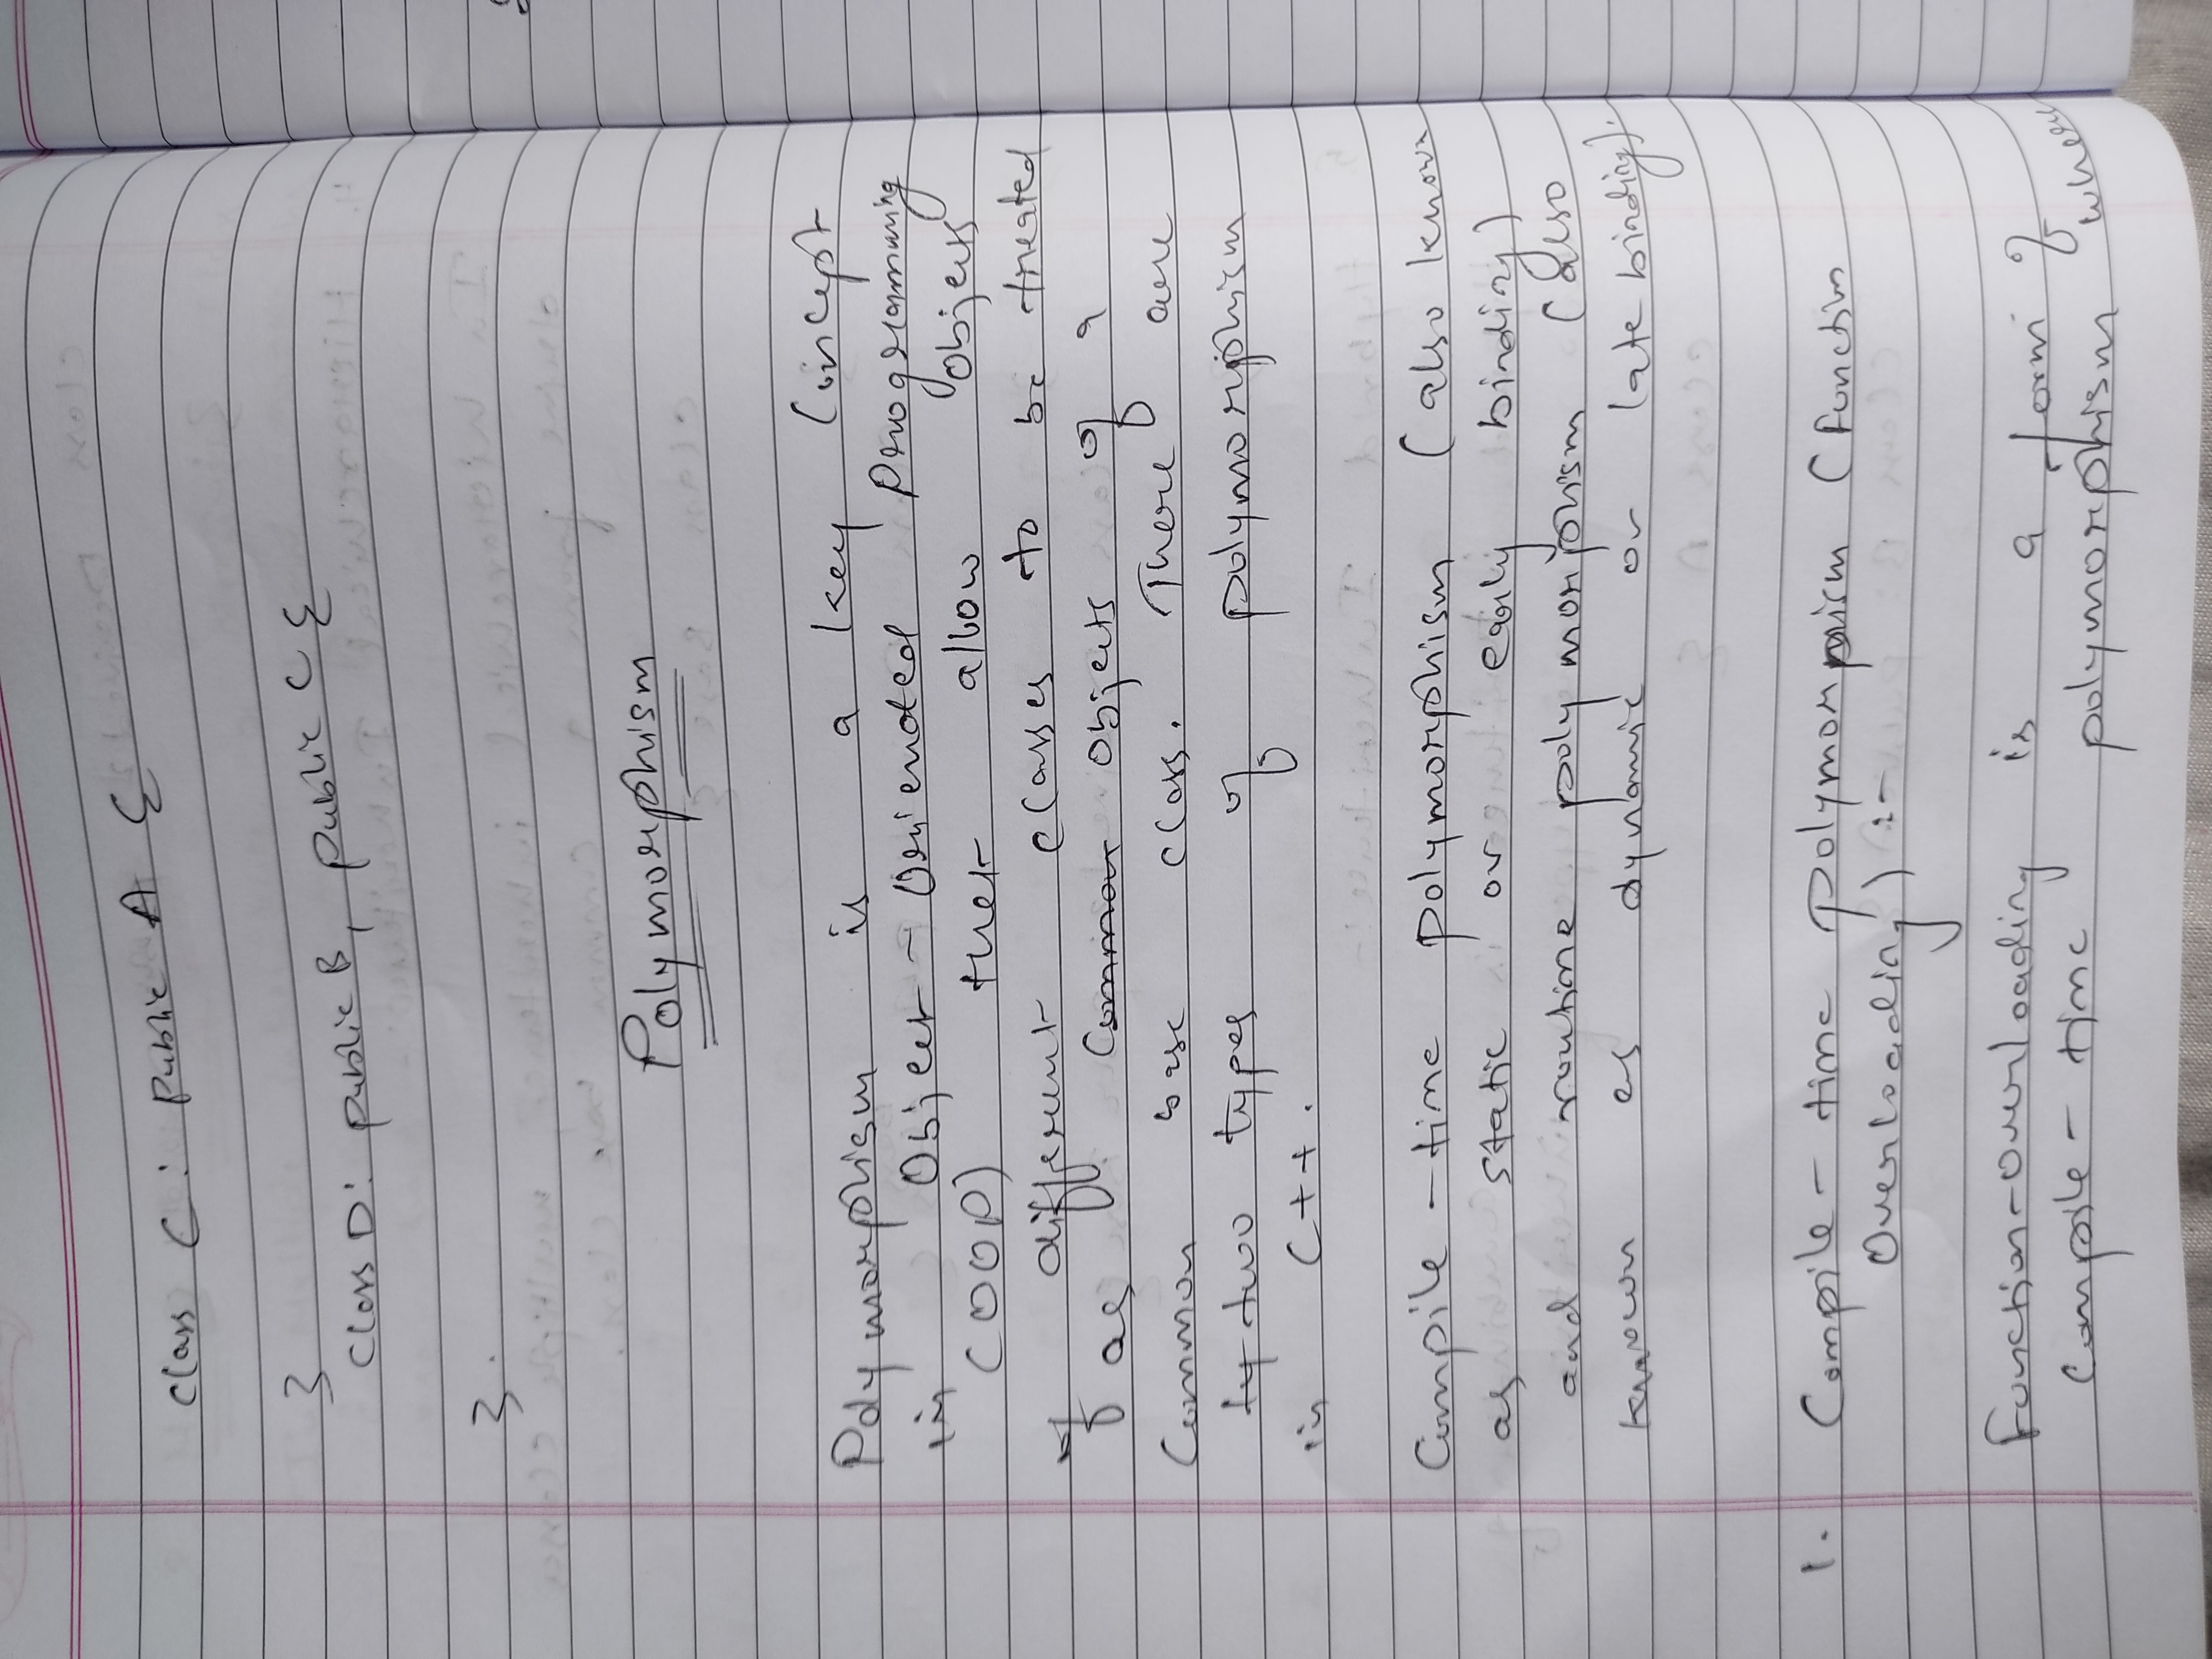 class C: public A {
}
class D: public B, public C {
}.
Polymorphism
Polymorphism is a key Concept
in Object-Oriended Programming
(OOP) that allow objects
of different classes to be treated
as Common objects of a
Common base class. There are
ty two types of polymorphism
in C++.
Compile-time polymorphism (also known
as static or early binding)
and routime polymorphism (also
known as dynamic or late binding).
1. Compile-time polymorphism (function
Overloading) :-
Function-overloading is a form of
Compile-time polymorphism where